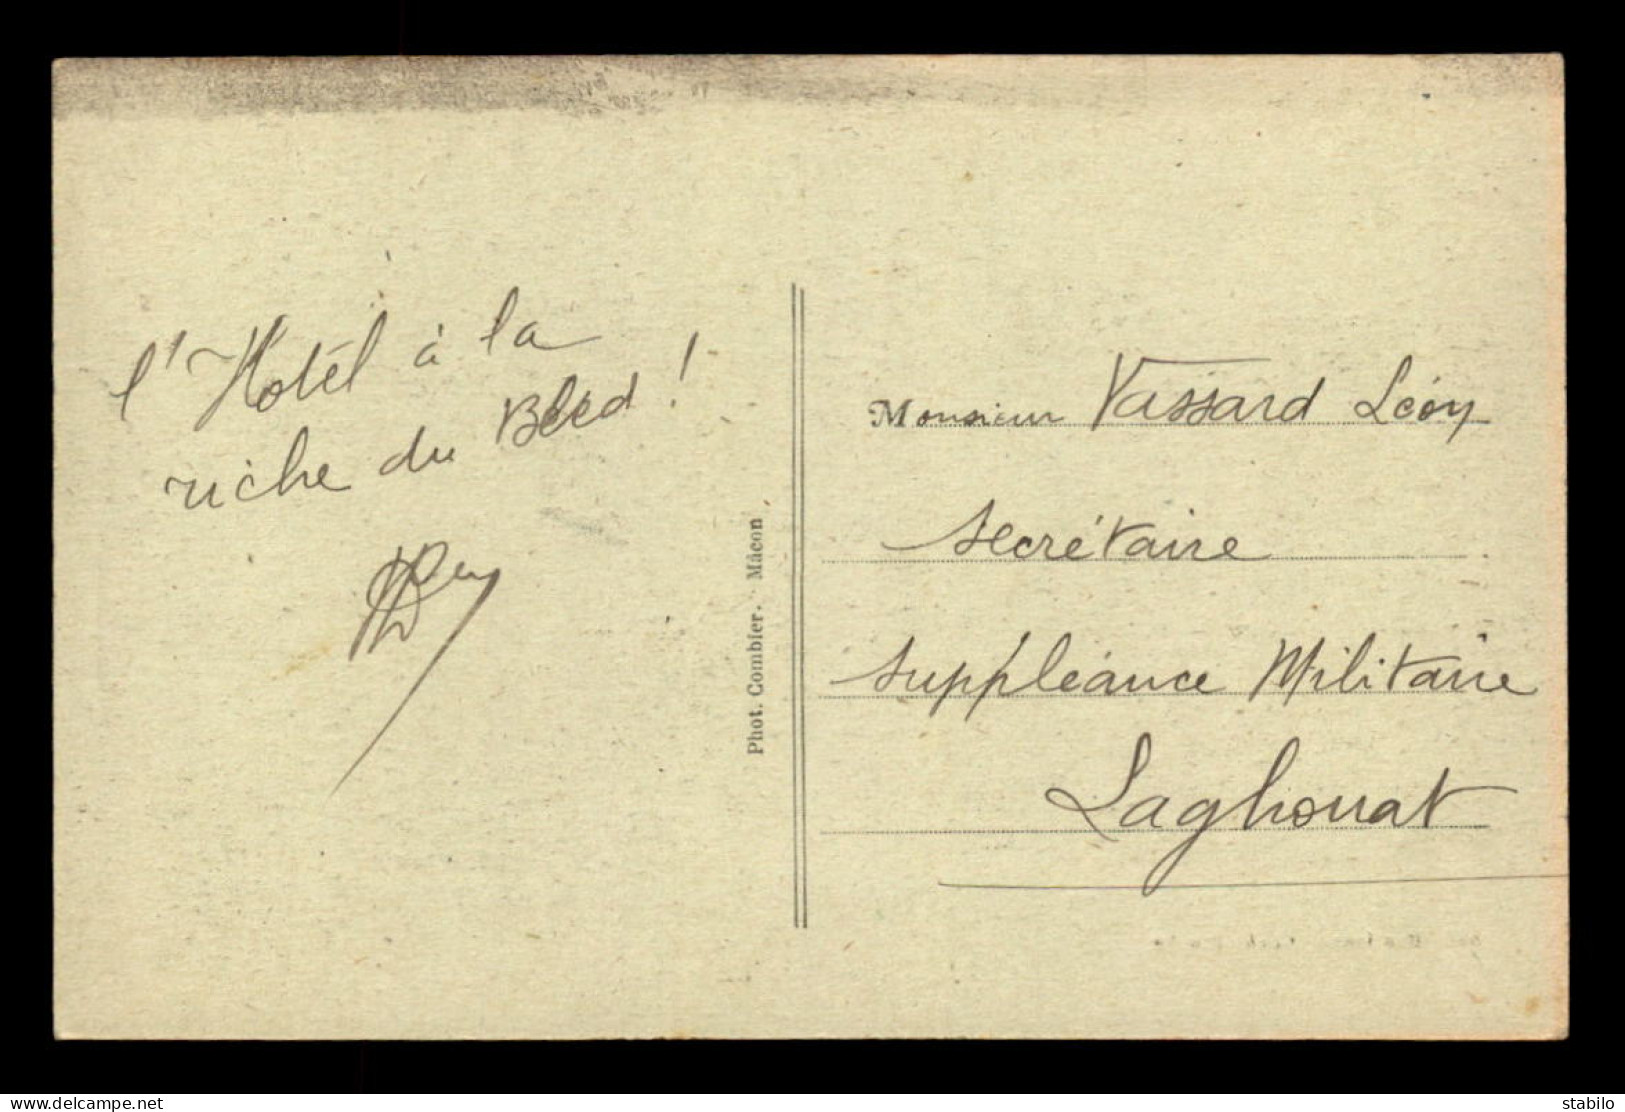 l'Hotel à la
riche du Bled !
Phot. Combier. Mâcon
Monsieur Vassard Léon
Secrétaire
Suppléance Militaire
Laghouat
delcampe.net
stabilo